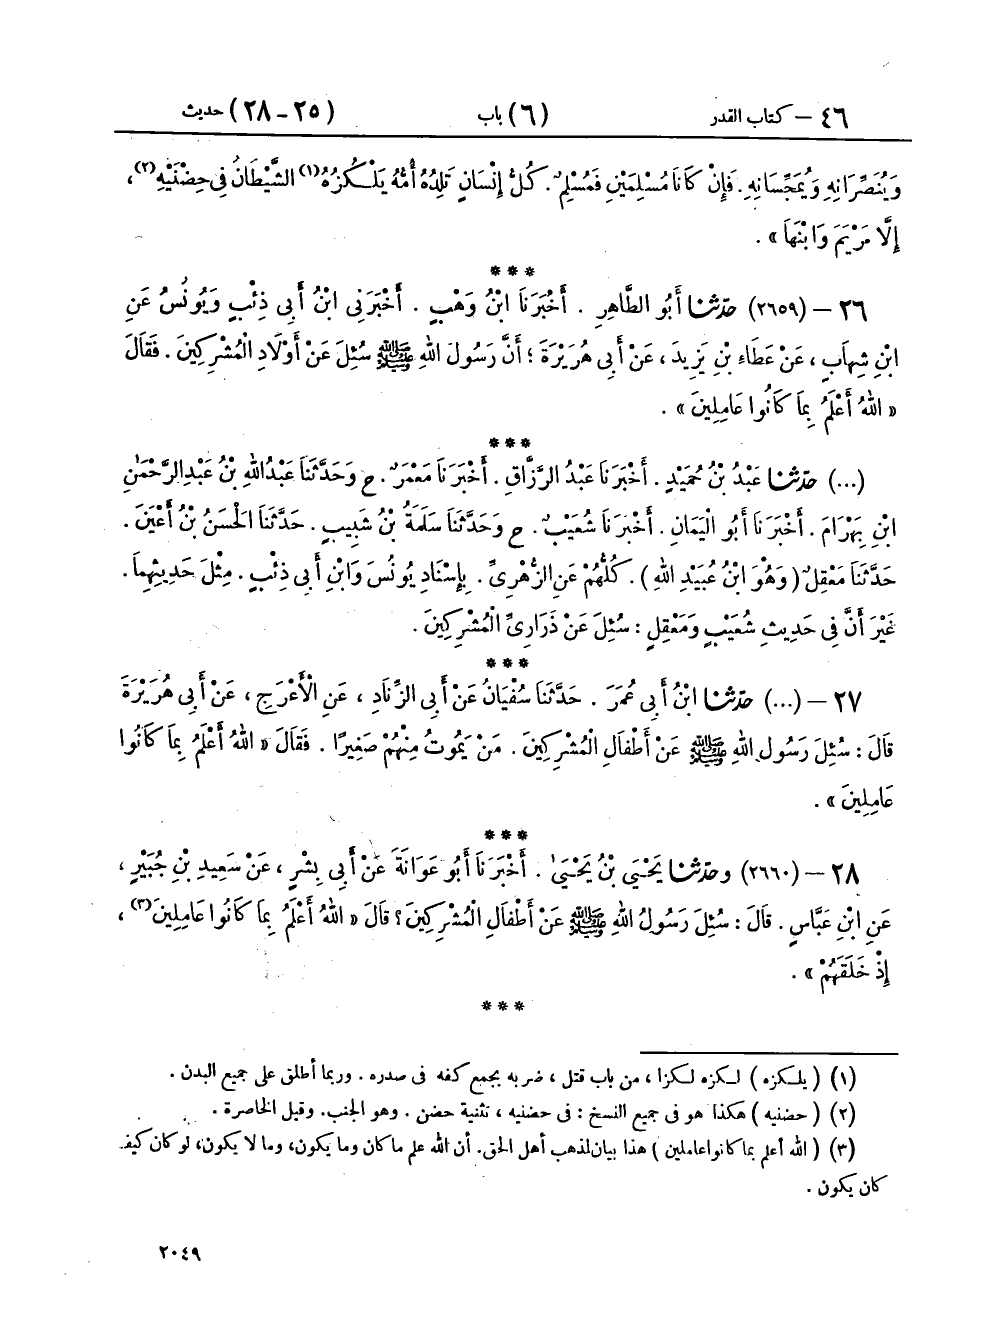 ٤٦ – كتاب القدر (٦) باب (٢٥ – ٢٨) حديث
وَيُنَصِّرَانِهِ وَيُمَجِّسَانِهِ. فَإِنْ كَانَا مُسْلِمَيْنِ فَمُسْلِمٌ. كُلُّ إِنْسَانٍ تَلِدُهُ أُمُّهُ يَلْكُزُهُ(١) الشَّيْطَانُ فِى حِضْنَيْهِ(٢)،
إِلَّا مَرْيَمَ وَابْنَهَا».
***
٢٦ – (٢٦٥٩) حدّثنا أَبُو الطَّاهِرِ. أَخْبَرَنَا ابْنُ وَهْبٍ. أَخْبَرَنِى ابْنُ أَبِى ذِئْبٍ وَيُونُسُ عَنِ
ابْنِ شِهَابٍ، عَنْ عَطَاءِ بْنِ يَزِيدَ، عَنْ أَبِى هُرَيْرَةَ؛ أَنَّ رَسُولَ اللهِ ﷺ سُئِلَ عَنْ أَوْلَادِ الْمُشْرِكِينَ. فَقَالَ
«اللهُ أَعْلَمُ بِمَا كَانُوا عَامِلِينَ».
***
(...) حدّثنا عَبْدُ بْنُ حُمَيْدٍ. أَخْبَرَنَا عَبْدُ الرَّزَّاقِ. أَخْبَرَنَا مَعْمَرٌ. ح وَحَدَّثَنَا عَبْدُاللهِ بْنُ عَبْدِالرَّحْمَٰنِ
ابْنِ بِهْرَامَ. أَخْبَرَنَا أَبُو الْيَمَانِ. أَخْبَرَنَا شُعَيْبٌ. ح وَحَدَّثَنَا سَلَمَةُ بْنُ شَبِيبٍ. حَدَّثَنَا الْحَسَنُ بْنُ أَعْيَنَ.
حَدَّثَنَا مَعْقِلٌ (وَهُوَ ابْنُ عُبَيْدِ اللهِ). كُلُّهُمْ عَنِ الزُّهْرِىِّ. بِإِسْنَادِ يُونُسَ وَابْنِ أَبِى ذِئْبٍ. مِثْلَ حَدِيثِهِمَا.
غَيْرَ أَنَّ فِى حَدِيثِ شُعَيْبٍ وَمَعْقِلٍ: سُئِلَ عَنْ ذَرَارِىِّ الْمُشْرِكِينَ.
***
٢٧ – (...) حدّثنا ابْنُ أَبِى عُمَرَ. حَدَّثَنَا سُفْيَانُ عَنْ أَبِى الزِّنَادِ، عَنِ الْأَعْرَجِ، عَنْ أَبِى هُرَيْرَةَ
قَالَ: سُئِلَ رَسُولُ اللهِ ﷺ عَنْ أَطْفَالِ الْمُشْرِكِينَ. مَنْ يَمُوتُ مِنْهُمْ صَغِيرًا. فَقَالَ «اللهُ أَعْلَمُ بِمَا كَانُوا
عَامِلِينَ».
***
٢٨ – (٢٦٦٠) وحدّثنا يَحْيَىٰ بْنُ يَحْيَىٰ. أَخْبَرَنَا أَبُو عَوَانَةَ عَنْ أَبِى بِشْرٍ، عَنْ سَعِيدِ بْنِ جُبَيْرٍ،
عَنِ ابْنِ عَبَّاسٍ. قَالَ: سُئِلَ رَسُولُ اللهِ ﷺ عَنْ أَطْفَالِ الْمُشْرِكِينَ؟ قَالَ «اللهُ أَعْلَمُ بِمَا كَانُوا عَامِلِينَ(٣)،
إِذْ خَلَقَهُمْ».
***
(١) (يلكزه) لكزه لكزا، من باب قتل، ضربه بجمع كفه فى صدره. وربما أطلق على جميع البدن.
(٢) (حضنيه) هكذا هو فى جميع النسخ: فى حضنيه، تثنية حضن. وهو الجنب. وقيل الخاصرة.
(٣) (الله أعلم بما كانوا عاملين) هذا بيان لمذهب أهل الحق. أن الله علم ما كان وما يكون، وما لا يكون، لو كان كيف
كان يكون.
٢٠٤٩